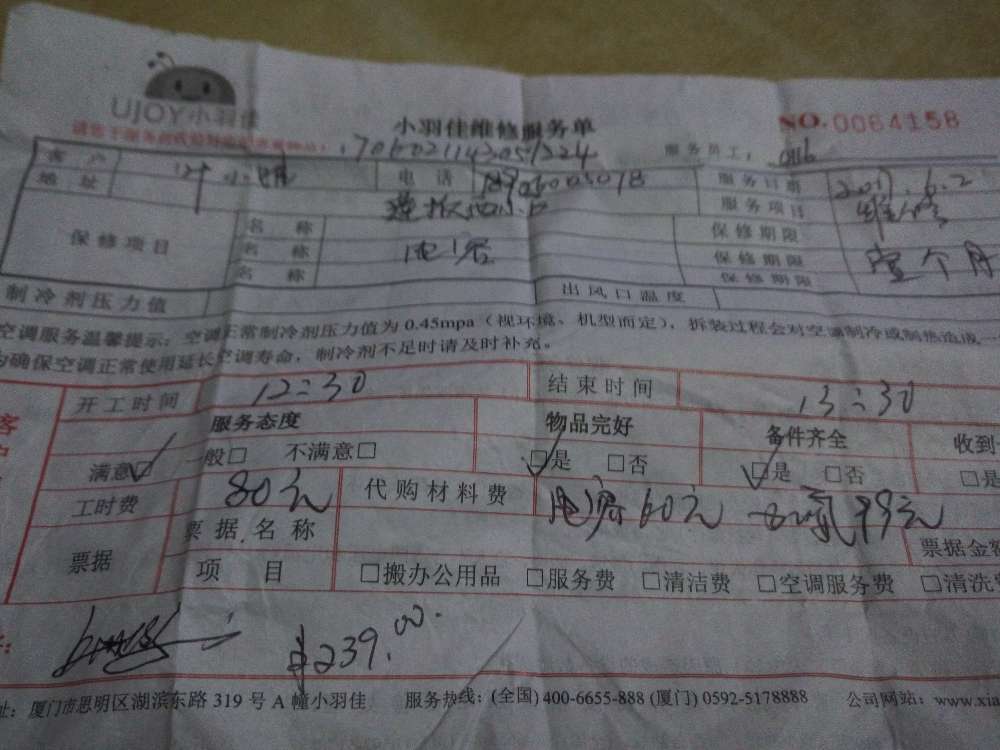 UJOY小羽佳
小羽佳维修服务单
NO.0064158
服务员工： 0116
客户 电话 服务日期 2017.6.2
地址 服务项目 维修
保修项目 名称 保修期限
名称 电容 保修期限 壹个月
名称 保修期限
制冷剂压力值 出风口温度
空调服务温馨提示：空调正常制冷剂压力值为0.45mpa（视环境、机型而定），拆装过程会对空调制冷或制热造成一
为确保空调正常使用延长空调寿命，制冷剂不足时请及时补充。
开工时间 12:30 结束时间 13:30
服务态度 物品完好 备件齐全 收到
满意☑ 一般□ 不满意□ ☑是 □否 ☑是 □否 □是
工时费 80元 代购材料费 电容60元 加氟99元
票据 票据名称 票据金额
项目 □搬办公用品 □服务费 □清洁费 □空调服务费 □清洗
$239.00
址：厦门市思明区湖滨东路319号A幢小羽佳 服务热线：(全国)400-6655-888 (厦门)0592-5178888 公司网站：www.xia